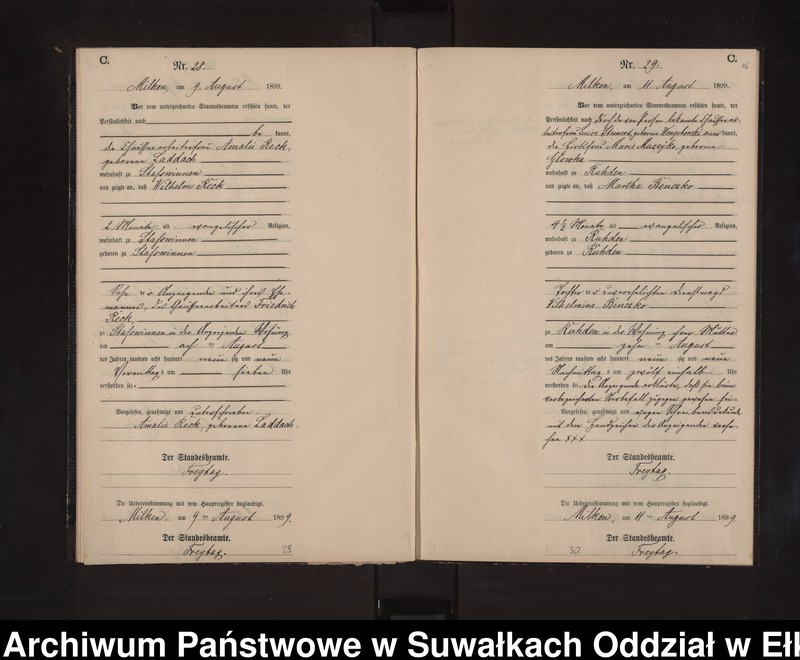 C.
Nr. 28.
Milken, am 9. August 1899.
Vor dem unterzeichneten Standesbeamten erschien heute, der
Persönlichkeit nach
be kannt,
die Chausseearbeiterfrau Amalie Reck,
geborene Laddach
wohnhaft zu Staßwinnen
und zeigte an, daß Wilhelm Reck
2 Monate alt evangelischer Religion,
wohnhaft zu Staßwinnen
geboren zu Staßwinnen
Sohn der Anzeigenden und ihres Ehe-
mannes, des Chausseearbeiters Friedrich
Reck,
zu Staßwinnen in der Anzeigenden Wohnung
am acht ten August
des Jahres tausend acht hundert neun zig und neun
Vormittags um sieben Uhr
verstorben sei.
Vorgelesen, genehmigt und unterschrieben.
Amalie Reck, geborene Laddach.
Der Standesbeamte.
Freytag.
Die Uebereinstimmung mit dem Hauptregister beglaubigt.
Milken, am 9 ten August 1899.
Der Standesbeamte.
Freytag.
28
C.
Nr. 29.
Milken, am 11 August 1899.
Vor dem unterzeichneten Standesbeamten erschien heute, der
Persönlichkeit nach
kannt,
die Marie geborene
Glowka
wohnhaft zu Ruhden
und zeigte an, daß Martha Benczko
4½ Monate alt evangelischer Religion,
wohnhaft zu Ruhden
geboren zu Ruhden
Tochter der unverehelichten Dienstmagd
Wilhelmine Benczko
zu Ruhden in der Wohnung ihrer Mutter
am zehn ten August
des Jahres tausend acht hundert neun zig und neun
Nachmittags um zwölf einhalb Uhr
verstorben sei. Die Anzeigende erklärte, daß sie beim
vorbezeichneten Sterbefall zugegen gewesen sei.
Vorgelesen, genehmigt und wegen Schreibensunkunde
mit dem Handzeichen der Anzeigenden verse-
hen xxx
Der Standesbeamte.
Freytag.
Die Uebereinstimmung mit dem Hauptregister beglaubigt.
Milken, am 11 ten August 1899
Der Standesbeamte.
30 Freytag.
Archiwum Państwowe w Suwałkach Oddział w Ełk